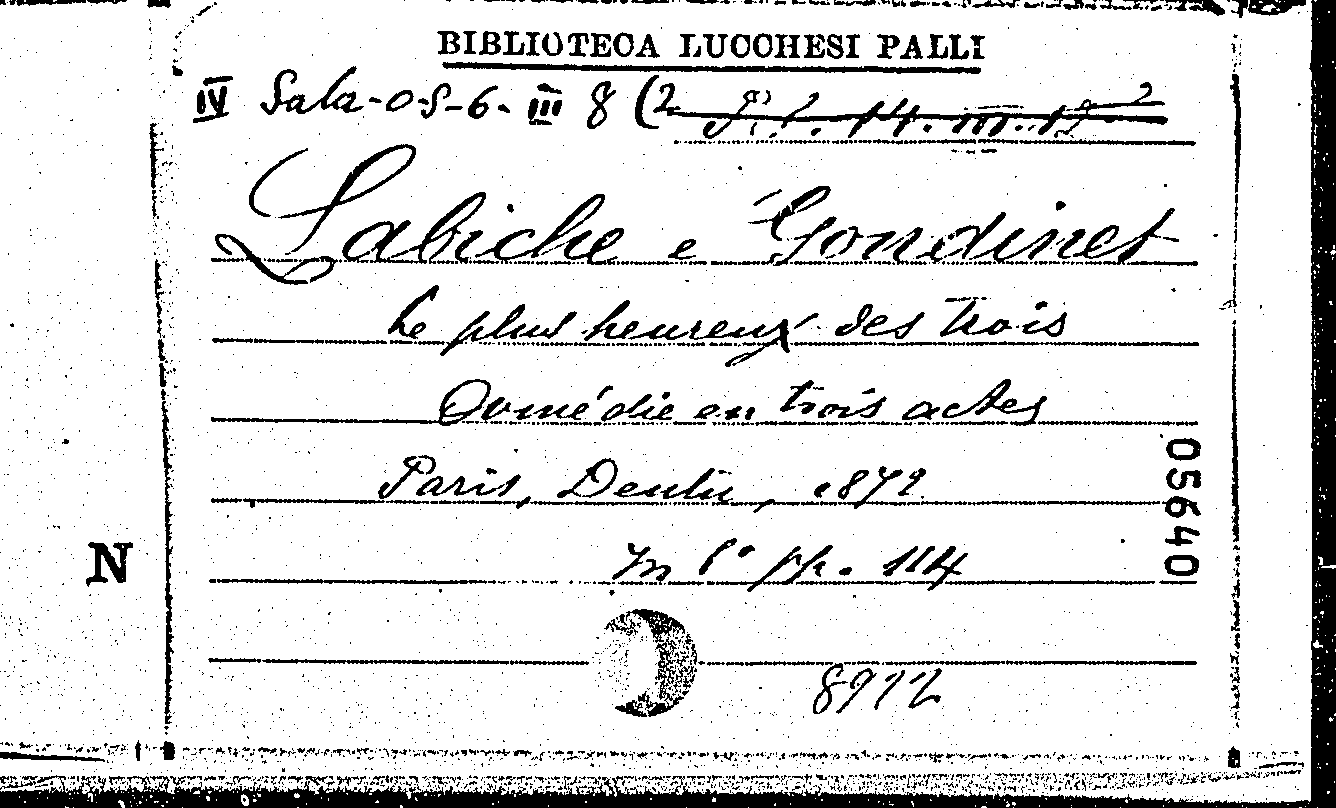 BIBLIOTECA LUCCHESI PALLI
IV Sala-05-6-III 8 (2
Labiche e Gondinet
Le plus heureux des trois
Comédie en trois actes
Paris, Dentu, 1872
In 6° pp. 114
05640
N
8922